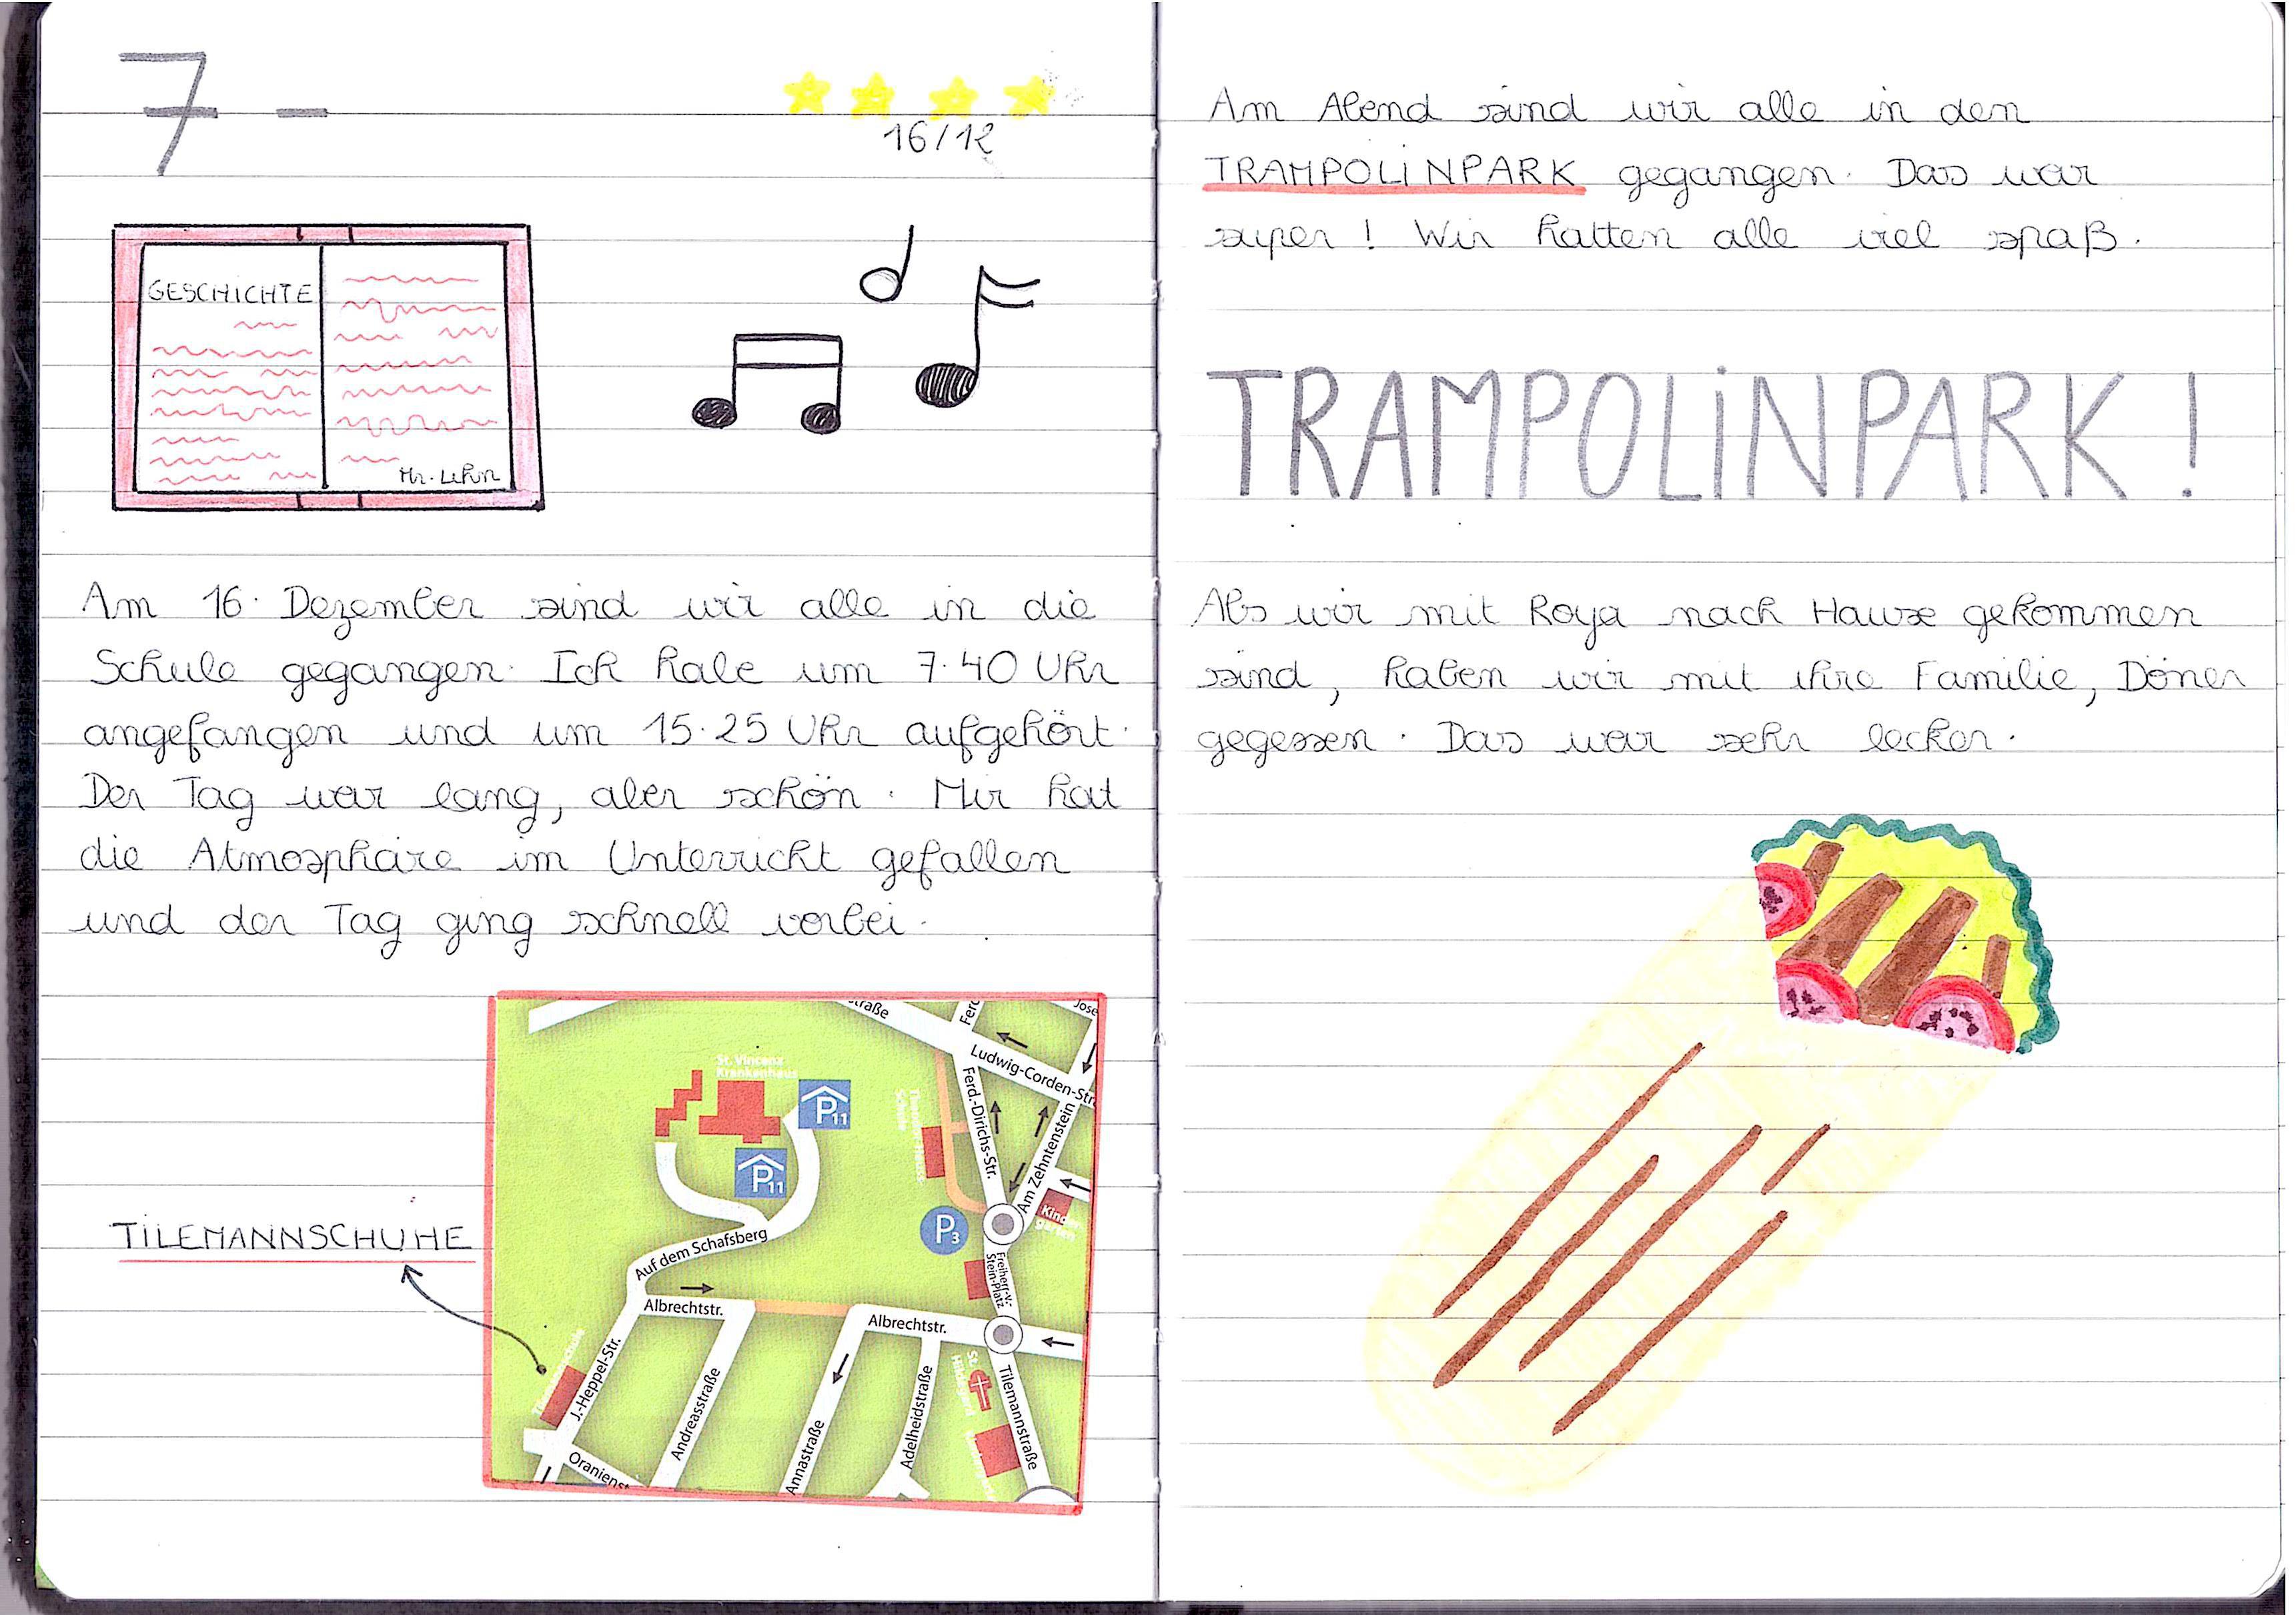 7 -
16/12
GESCHICHTE
Am 16. Dezember sind wir alle in die
Schule gegangen. Ich habe um 7.40 Uhr
angefangen und um 15.25 Uhr aufgehört.
Der Tag war lang, aber schön. Mir hat
die Atmosphäre im Unterricht gefallen
und der Tag ging schnell vorbei.
TILEMANNSCHUHE
straße
Ferd
Jose
Ludwig-Corden-Str
St. Vincenz
Krankenhaus
P11
P11
Ferd.-Dirichs-Str.
Am Zehntenstein
Kinder
garten
P3
Freiherr-v.-
Stein-Platz
Auf dem Schafsberg
Albrechtstr.
Albrechtstr.
J.-Heppel-Str.
Andreasstraße
Annastraße
Adelheidstraße
St.
Tilemannstraße
Oranienst
Am Abend sind wir alle in den
TRAMPOLINPARK gegangen. Das war
super! Wir hatten alle viel spaß.
TRAMPOLINPARK!
Als wir mit Roya nach Hause gekommen
sind, haben wir mit ihre Familie, Döner
gegessen. Das war sehr lecker.